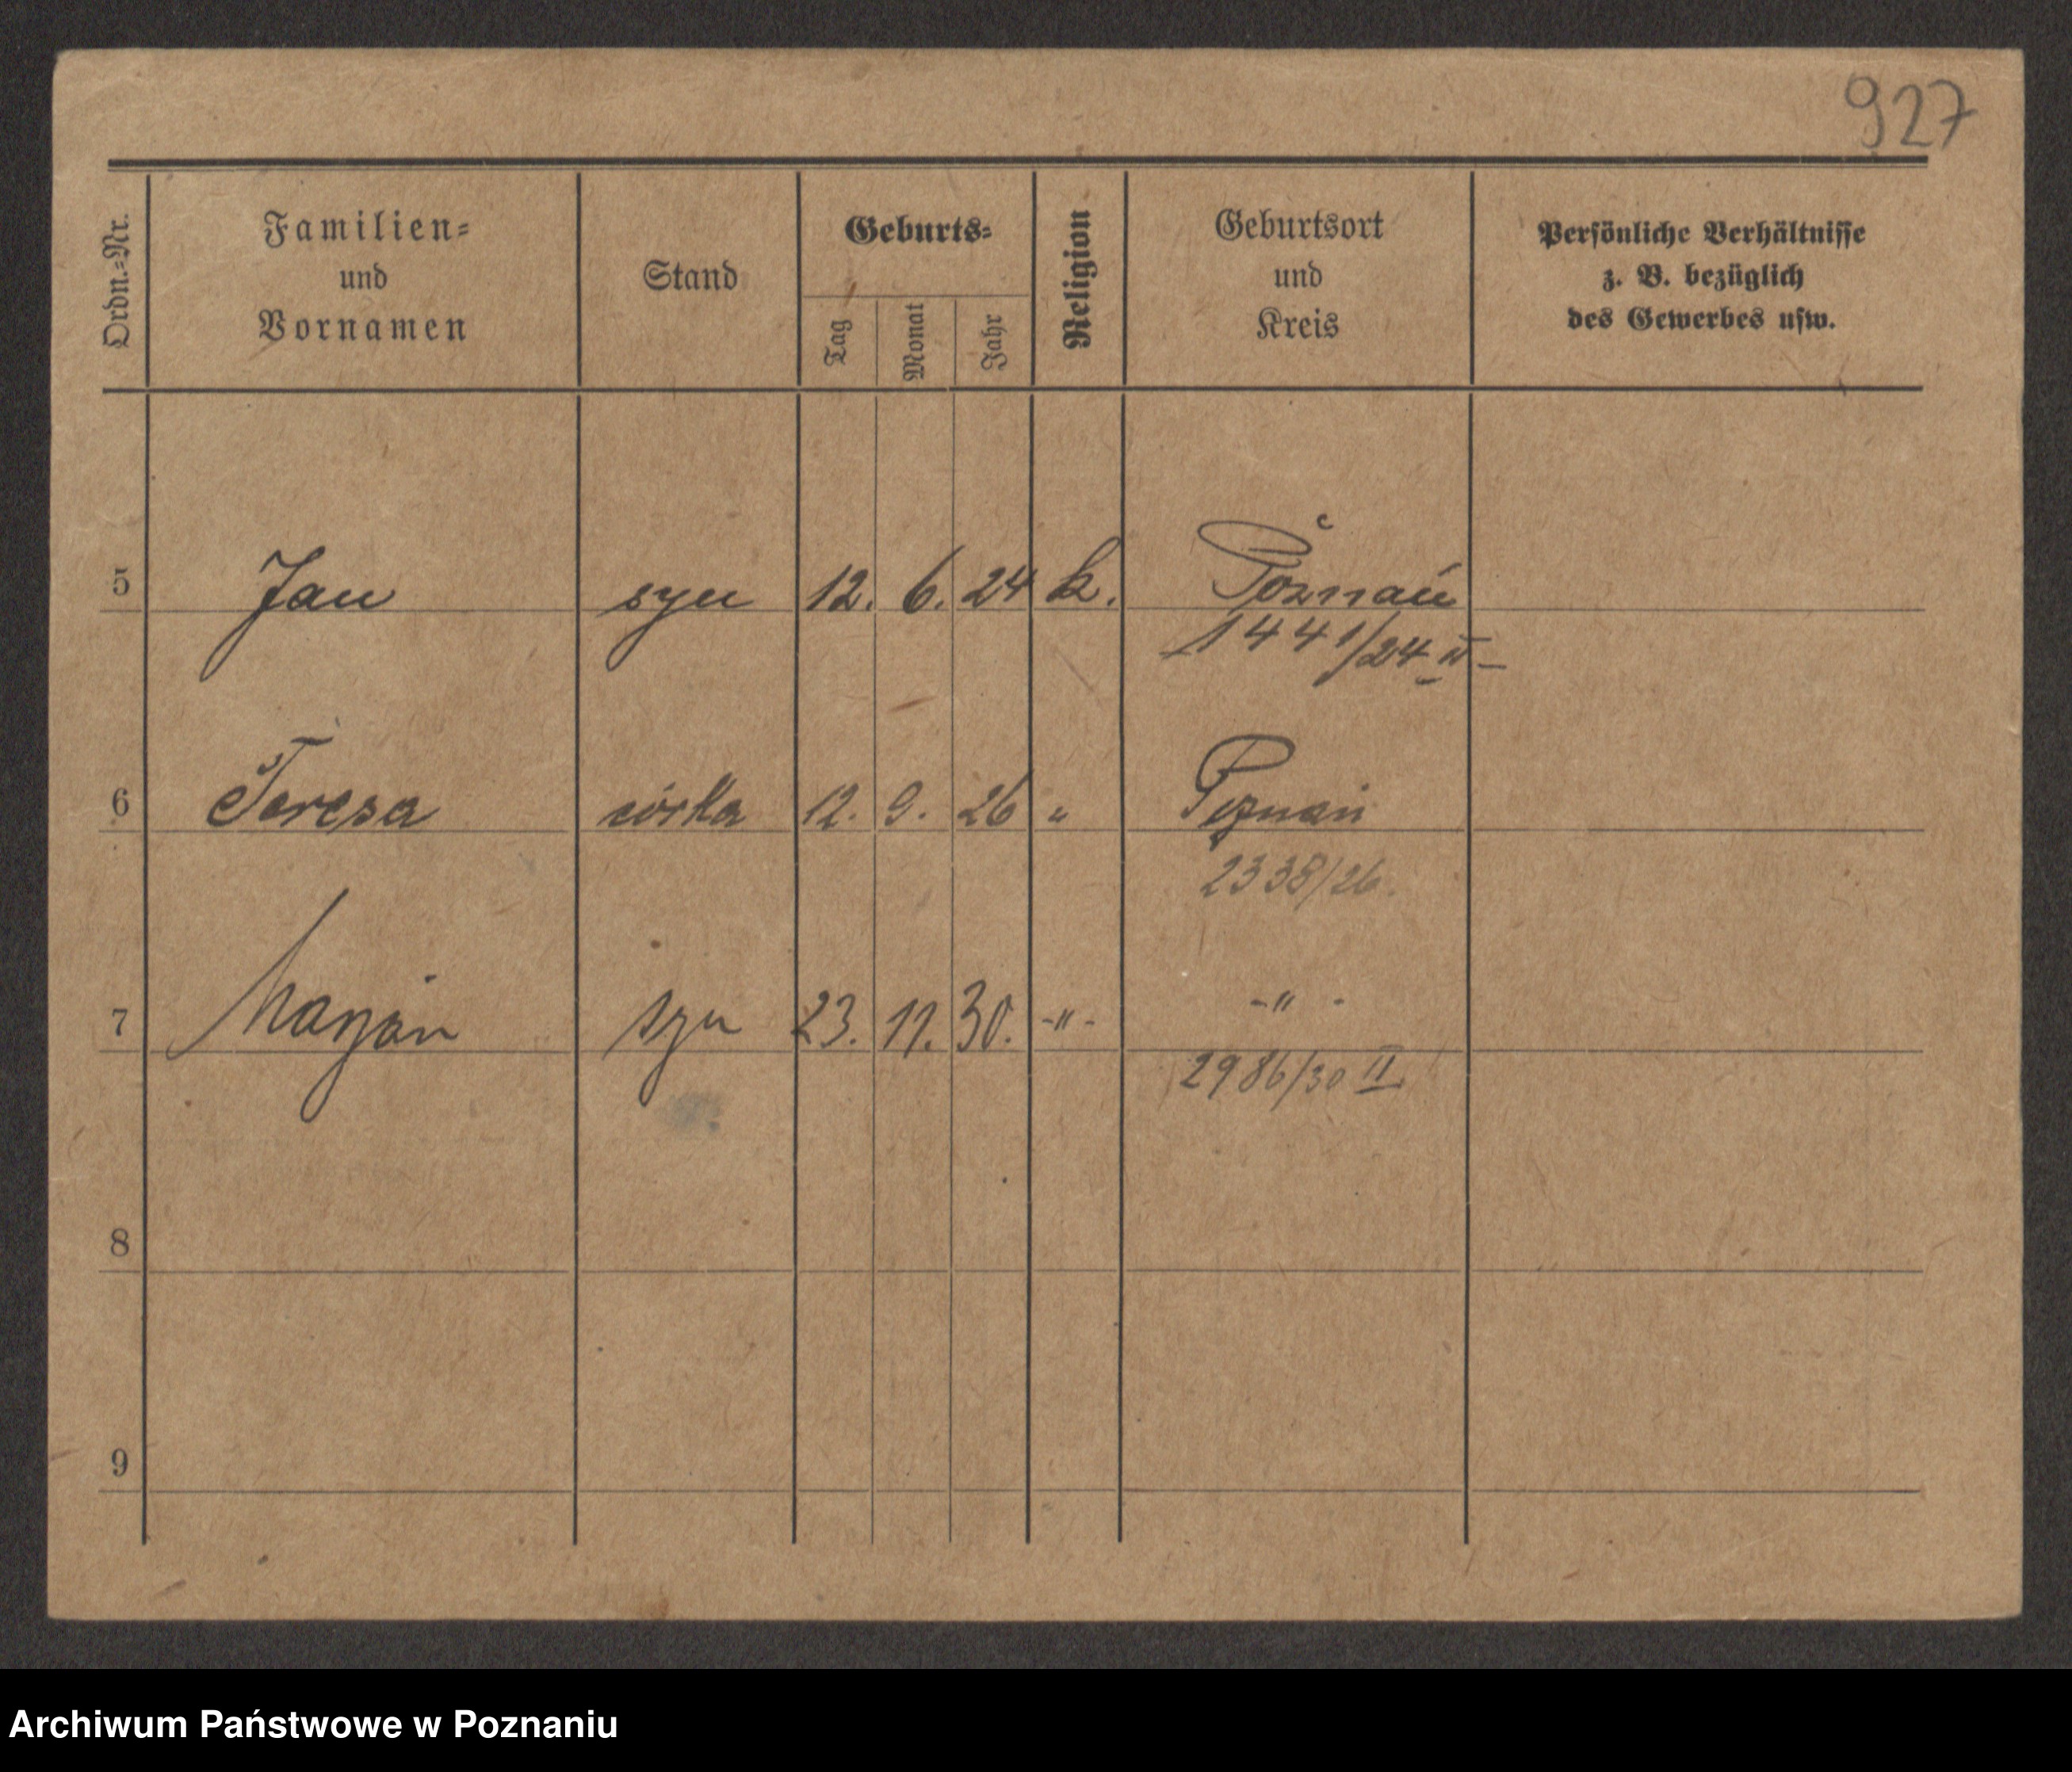 927
Ordn.=Nr.
Familien=
und
Vornamen
Stand
Geburts=
Tag
Monat
Jahr
Religion
Geburtsort
und
Kreis
Persönliche Verhältnisse
z. B. bezüglich
des Gewerbes usw.
5 Jan syn 12. 6. 24 k. Poznań
1441/24 IV
6 Teresa córka 12. 9. 26 " Poznań
2338/26.
7 Marjan syn 23. 11. 30. -"- -"-
2986/30 II
8
9
Archiwum Państwowe w Poznaniu